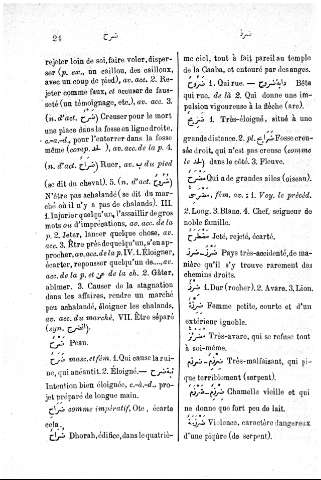 24 ضرح ضرز
rejeter loin de soi, faire voler, disper-
ser (p. ex., un caillou, des cailloux,
avec un coup de pied), av. acc. 2. Re-
jeter comme faux, et accuser de faus-
seté (un témoignage, etc.), av. acc. 3.
(n. d'act. ضَرْح) Creuser pour le mort
une place dans la fosse en ligne droite,
c.-à-d., pour l'enterrer dans la fosse
même (comp. لحد), av. acc. de la p. 4.
(n. d'act. ضِرَاح) Ruer, av. ب du pied
(se dit du cheval). 5. (n. d'act. ضُرُوح)
N'être pas achalandé (se dit du mar-
ché où il n'y a pas de chalands). III.
1. Injurier quelqu'un, l'assaillir de gros
mots ou d'imprécations, av. acc. de la
p. 2. Jeter, lancer quelque chose, av.
acc. 3. Être près de quelqu'un, s'en ap-
procher, av. acc. de la p. IV. 1. Éloigner,
écarter, repousser quelqu'un de..., av.
acc. de la p. et عن de la ch. 2. Gâter,
abîmer. 3. Causer de la stagnation
dans les affaires, rendre un marché
peu achalandé, éloigner les chalands,
av. acc. du marché. VII. Être séparé
(syn. انضرج).
ضَرْح Peau.
ضَرَح masc. et fém. 1. Qui cause la rui-
ne, qui anéantit. 2. Éloigné. — نية ضرح
Intention bien éloignée, c.-à-d., pro-
jet préparé de longue main.
ضَرَاحِ comme impératif, Ote, écarte
cela.
ضُرَاح Dhorah, édifice, dans le quatriè-
me ciel, tout à fait pareil au temple
de la Caaba, et entouré par des anges.
ضَرُوح 1. Qui rue. — دابة ضروح Bête
qui rue. de là 2. Qui donne une im-
pulsion vigoureuse à la flèche (arc).
ضَرِيح 1. Très-éloigné, situé à une
grande distance. 2. pl. ضرائح Fosse creu-
sée droit, qui n'est pas creusée (comme
لحد) dans le côté. 3. Fleuve.
مَضْرَح Qui a de grandes ailes (oiseau).
مَضْرَحِيّ, fém. av. ة 1. Voy. le précéd.
2. Long. 3. Blanc. 4. Chef, seigneur de
noble famille.
Jeté, rejeté, écarté.
Pays très-accidenté, de ma-
nière qu'il s'y trouve rarement des
chemins droits.
ضِرِزّ 1. Dur (rocher). 2. Avare. 3. Lion.
ضِرِزَّة Femme petite, courte et d'un
extérieur ignoble.
Très-avare, qui se refuse tout
à soi-même.
ضِرْزِم - ضَرْزَم Très-malfaisant, qui pi-
que terriblement (serpent).
ضِرْزِم - ضَرْزَم Chamelle vieille et qui
ne donne que fort peu de lait.
ضَرْزَمَة Violence, caractère dangereux
d'une piqûre (de serpent).